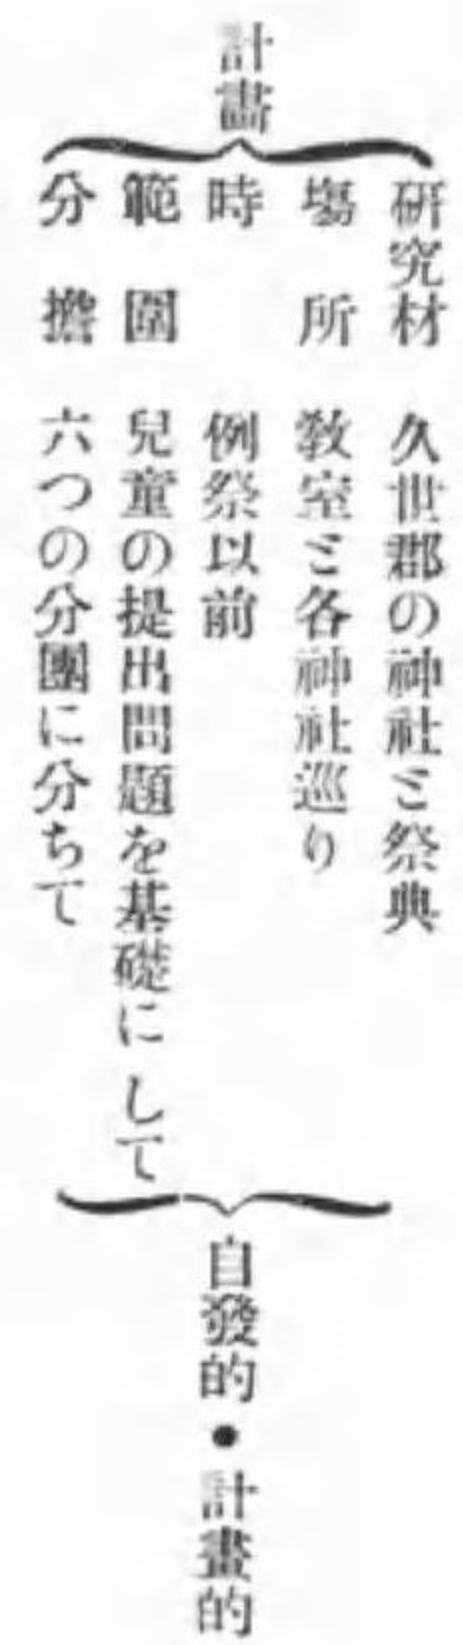 計畵
研究材 久世郡の神社ミ祭典
塲所 敎室ミ各神社巡り
時 例祭以前
範圍 兒童の提出問題を基礎にして
分擔 六つの分團に分ちて
自發的・計畫的